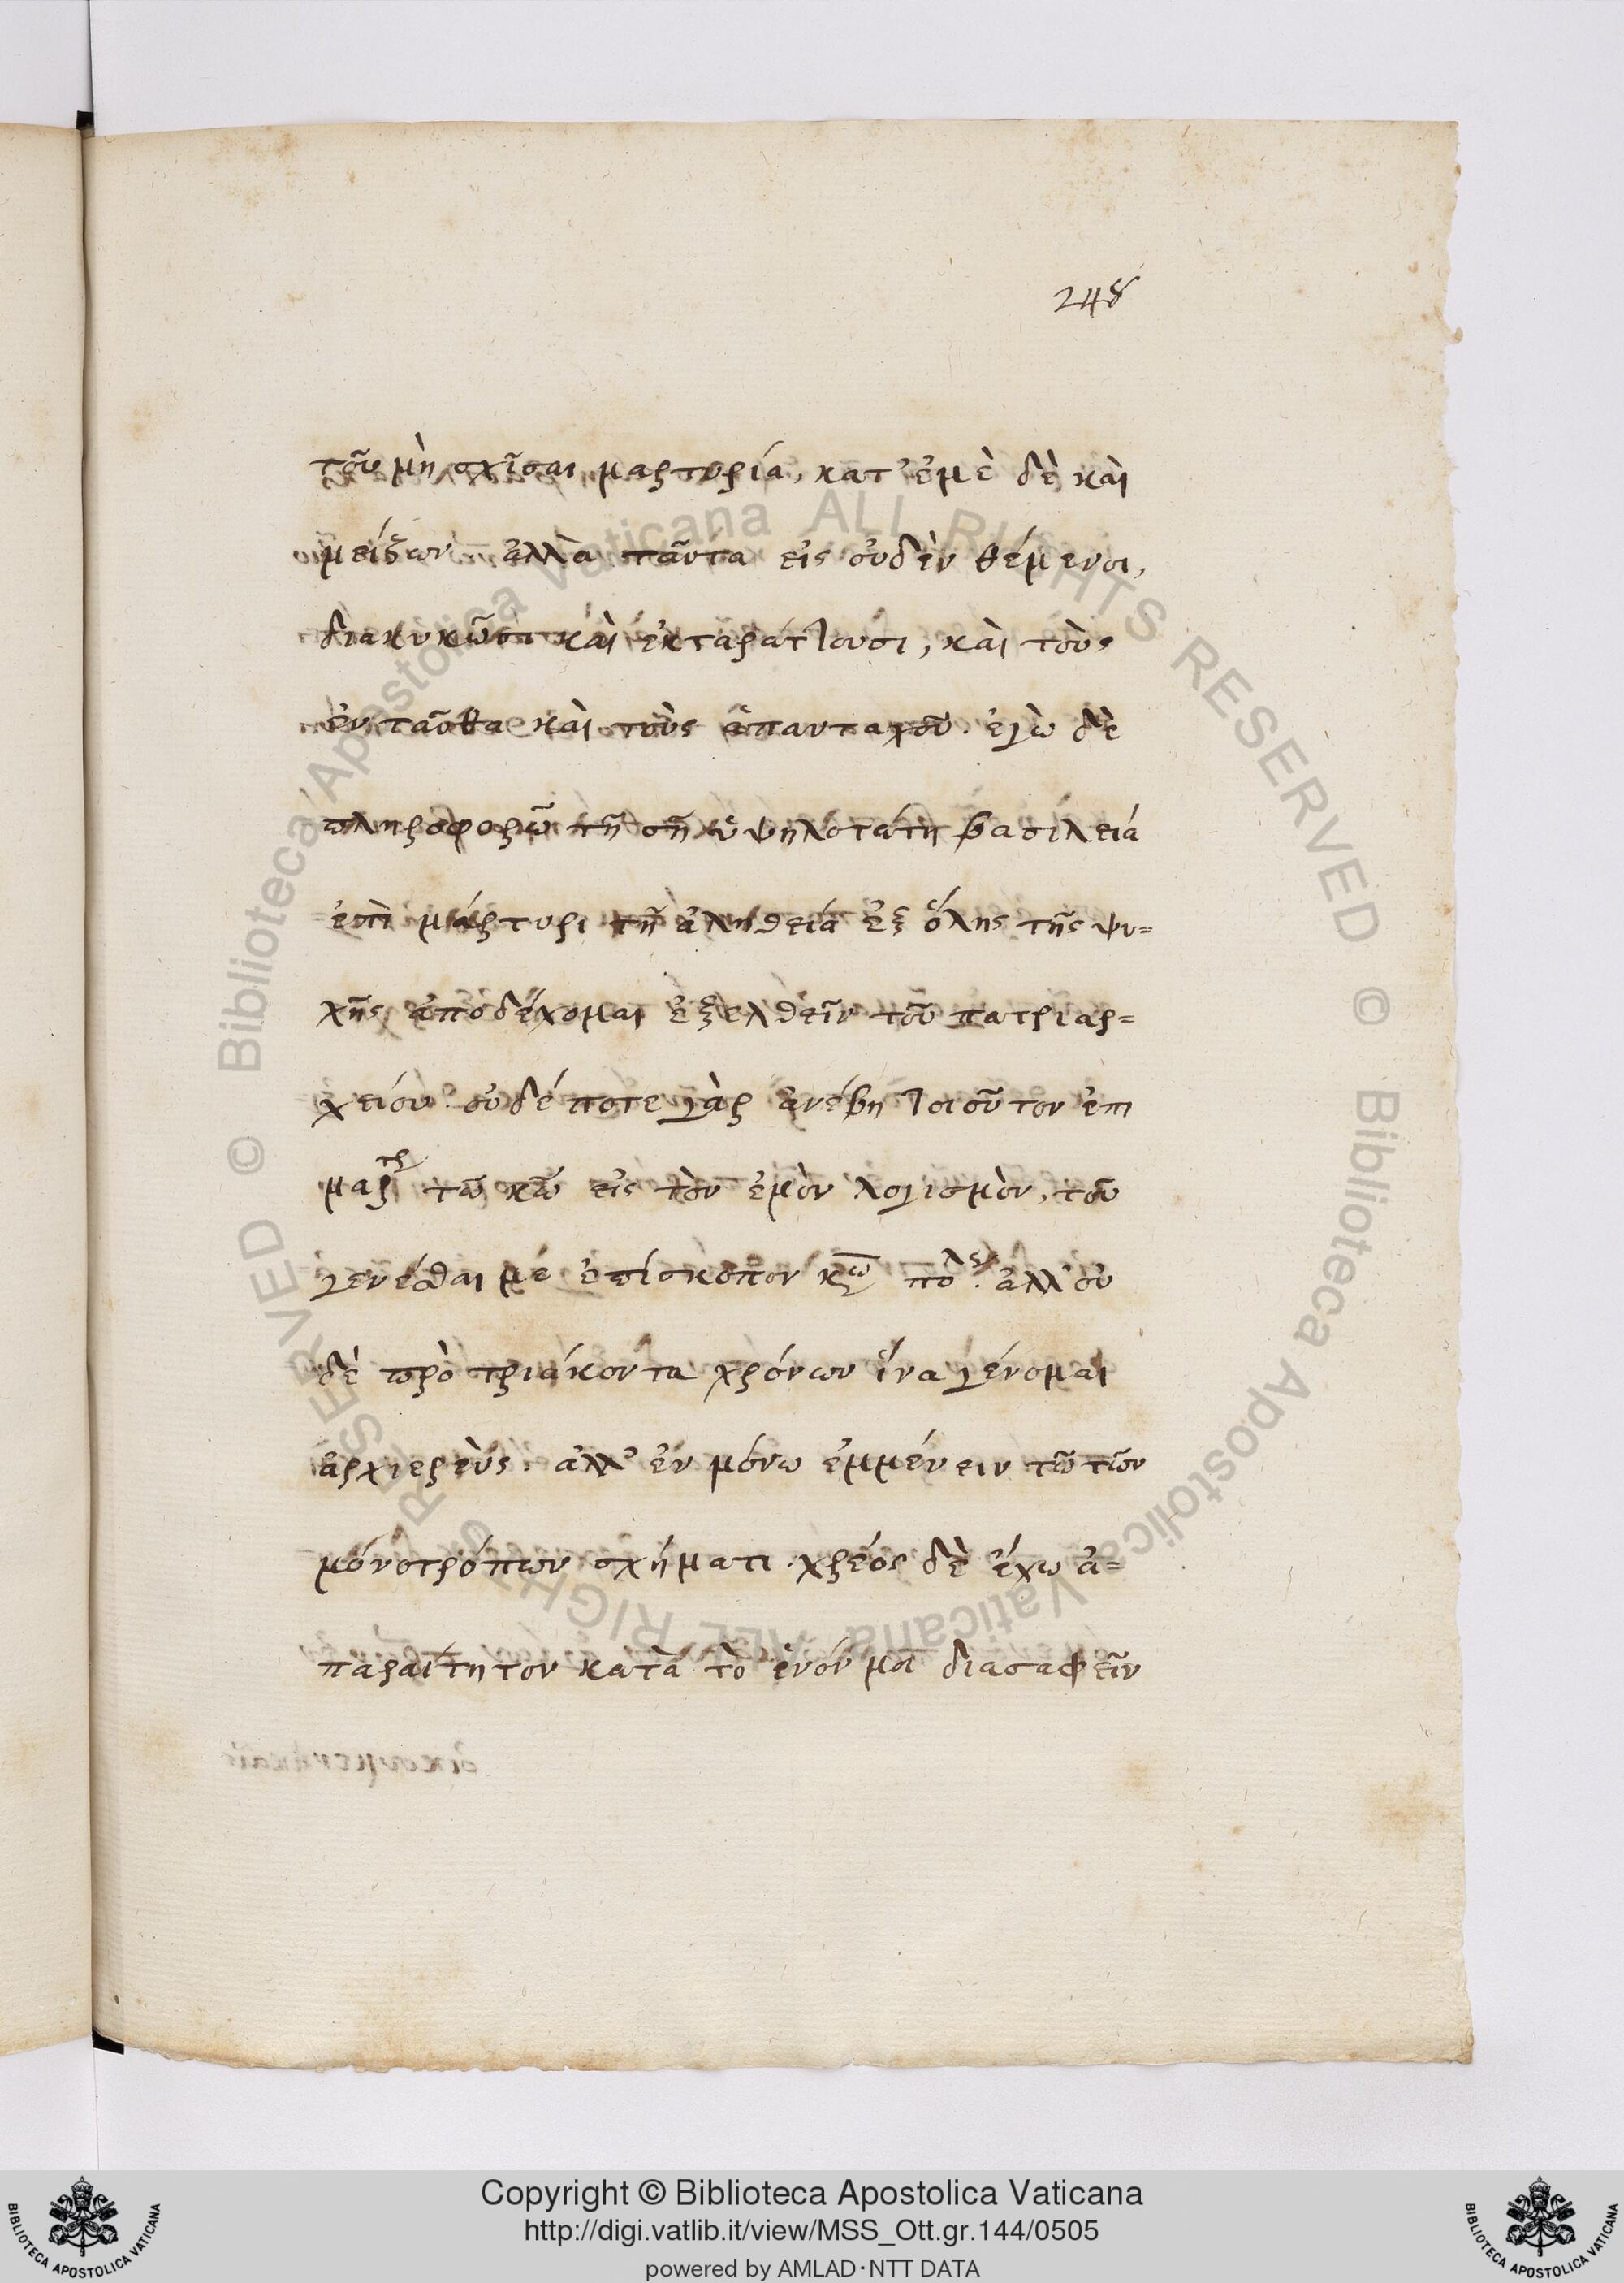 248
τοῦ μὴ σχίσαι μαρτυρία, κατ' ἐμὲ δὲ καὶ
μείζων· ἀλλὰ ταῦτα εἰς οὐδὲν θέμενοι,
διακυκῶσι καὶ ἐκταράττουσι, καὶ τοὺς
ἐνταῦθα καὶ τοὺς ἁπανταχοῦ. ἐγὼ δὲ
πληροφορῶ τῇ σῇ ὑψηλοτάτη βασιλεία
ἐπὶ μάρτυρι τῇ ἀληθεία ἐξ ὅλης τῆς ψυ=
χῆς ἀποδέχομαι ἐξελθεῖν τοῦ πατριαρ=
χείου· οὐδέποτε γὰρ ἀνέβη τοιοῦτον ἐπι
μαρτ τῶ κῶ εἰς τὸν ἐμὸν λογισμὸν, τοῦ
γενέσθαι με ἐπίσκοπον κω πολ. ἀλλ' οὐ
δὲ πρὸ τριάκοντα χρόνων ἵνα γένομαι
ἀρχιερεὺς. ἀλλ' ἐν μόνω ἐμμένειν τῶ τῶν
μονοτρόπων σχήματι. χρέος δὲ ἔχω ἀ=
παραίτητον κατὰ τὸ ἐνόν μοι διασαφεῖν
Copyright © Biblioteca Apostolica Vaticana
http://digi.vatlib.it/view/MSS_Ott.gr.144/0505
powered by AMLAD·NTT DATA
BIBLIOTECA APOSTOLICA VATICANA
BIBLIOTECA APOSTOLICA VATICANA
© Biblioteca Apostolica Vaticana ALL RIGHTS RESERVED
© Biblioteca Apostolica Vaticana ALL RIGHTS RESERVED